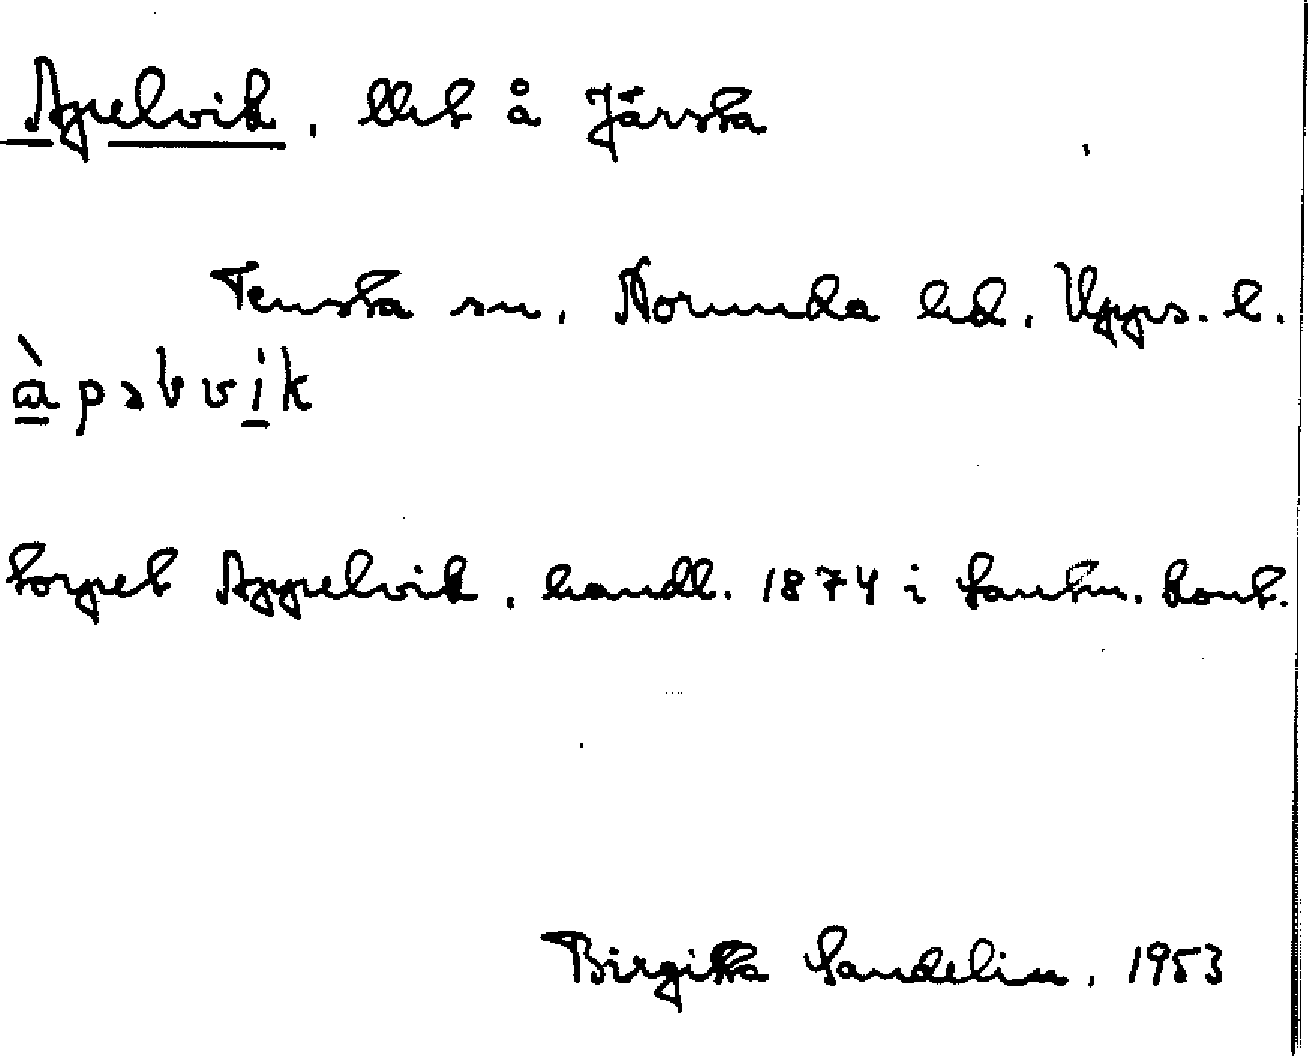 Apelvik, lht å Järsta
Tensta sn, Norunda hd, Upps. l.
àpəlvik
torpet Appelvik, handl. 1874 i lantm. kont.
Birgitta Sandelin, 1953